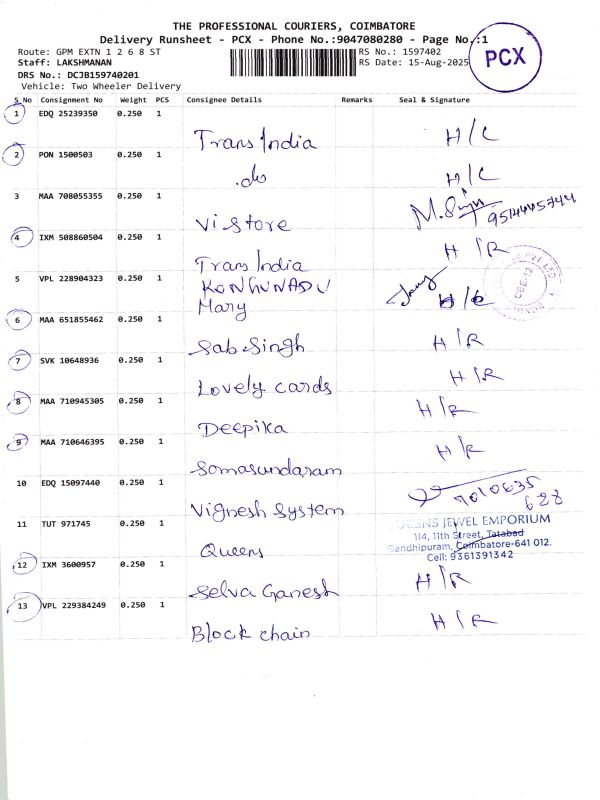 THE PROFESSIONAL COURIERS, COIMBATORE
Delivery Runsheet - PCX - Phone No.:9047080280 - Page No.:1
PCX
Route: GPM EXTN 1 2 6 8 ST RS No.: 1597402
Staff: LAKSHMANAN RS Date: 15-Aug-2025
DRS No.: DCJB159740201
Vehicle: Two Wheeler Delivery
S No Consignment No Weight PCS Consignee Details Remarks Seal & Signature
1 EDQ 25239350 0.250 1
Trans India H/C
2 PON 1500503 0.250 1
.do H/C
3 MAA 708055355 0.250 1
Vi Store
4 IXM 508860504 0.250 1 H/R
Trans India
5 VPL 228904323 0.250 1 KONGUNADU
Mary
6 MAA 651855462 0.250 1
Sab Singh H/R
7 SVK 10648936 0.250 1
Lovely cards H/R
8 MAA 710945305 0.250 1 H/R
Deepika
9 MAA 710646395 0.250 1 H/R
Somasundaram
10 EDQ 15097440 0.250 1 7010635
Vignesh System 628
11 TUT 971745 0.250 1 JEWEL EMPORIUM
114, 11th Street, Tatabad
Queens Gandhipuram, Coimbatore-641 012.
Cell: 9361391342
12 IXM 3600957 0.250 1
Selva Ganesh H/R
13 VPL 229384249 0.250 1
Block chain H/R